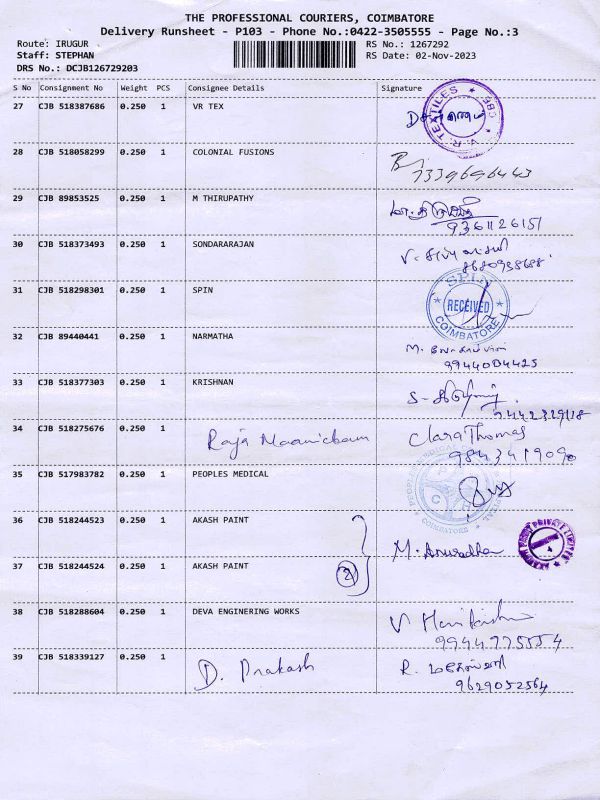 THE PROFESSIONAL COURIERS, COIMBATORE
Delivery Runsheet - P103 - Phone No.:0422-3505555 - Page No.:3
Route: IRUGUR RS No.: 1267292
Staff: STEPHAN RS Date: 02-Nov-2023
DRS No.: DCJB126729203
S No Consignment No Weight PCS Consignee Details Signature
27 CJB 518387686 0.250 1 VR TEX
V.R. TEXTILES * CBE *
28 CJB 518058299 0.250 1 COLONIAL FUSIONS
7339696443
29 CJB 89853525 0.250 1 M THIRUPATHY
9361126151
30 CJB 518373493 0.250 1 SONDARARAJAN
31 CJB 518298301 0.250 1 SPIN
RECEIVED
COIMBATORE
32 CJB 89440441 0.250 1 NARMATHA
9944004425
33 CJB 518377303 0.250 1 KRISHNAN
9442329118
34 CJB 518275676 0.250 1 Raja Maanickam Clara Thomas
9843419090
35 CJB 517983782 0.250 1 PEOPLES MEDICAL
COIMBATORE
36 CJB 518244523 0.250 1 AKASH PAINT
M. Anuradha
37 CJB 518244524 0.250 1 AKASH PAINT
2
38 CJB 518288604 0.250 1 DEVA ENGINERING WORKS
9944775554
39 CJB 518339127 0.250 1 D. Prakash R. மகேஸ்வரி
9629052564